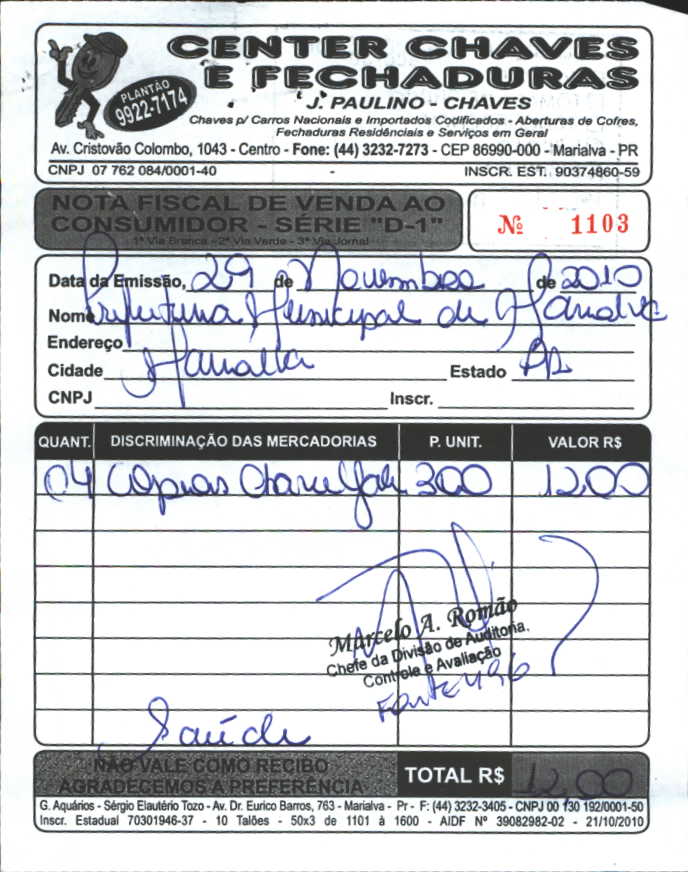 CENTER CHAVES
E FECHADURAS
PLANTÃO
9922-7174
J. PAULINO - CHAVES
Chaves p/ Carros Nacionais e Importados Codificados - Aberturas de Cofres,
Fechaduras Residênciais e Serviços em Geral
Av. Cristovão Colombo, 1043 - Centro - Fone: (44) 3232-7273 - CEP 86990-000 - Marialva - PR
CNPJ 07 762 084/0001-40 - INSCR. EST. 90374860-59
NOTA FISCAL DE VENDA AO
CONSUMIDOR - SÉRIE "D-1"
1ª Via Branca - 2ª Via Verde - 3ª Via Jornal
Nº 1103
Data da Emissão, 29 de Novembro de 2010
Nome Prefeitura Municipal de Marialva
Endereço
Cidade Marialva Estado PR
CNPJ Inscr.
QUANT. DISCRIMINAÇÃO DAS MERCADORIAS P. UNIT. VALOR R$
04 Cópias Chave Yale 300 12,00
Marcelo A. Romão
Chefe da Divisão de Auditoria,
Controle e Avaliação
Fonte 496
Saúde
NÃO VALE COMO RECIBO
AGRADECEMOS A PREFERÊNCIA
TOTAL R$ 12,00
G. Aquários - Sérgio Elautério Tozo - Av. Dr. Eurico Barros, 763 - Marialva - Pr - F: (44) 3232-3405 - CNPJ 00 130 192/0001-50
Inscr. Estadual 70301946-37 - 10 Talões - 50x3 de 1101 à 1600 - AIDF Nº 39082982-02 - 21/10/2010